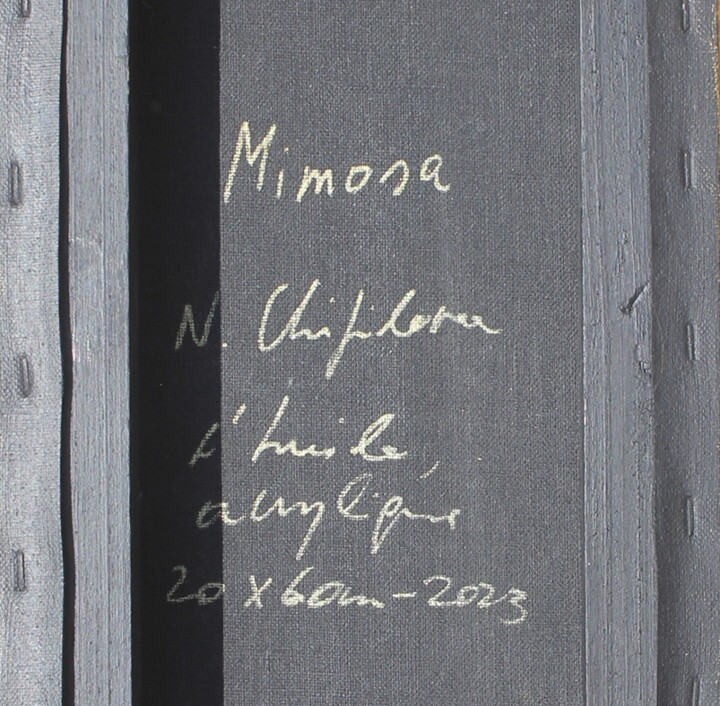 Mimosa
N. Chipilova
l'huile,
acrylique
20 x 60cm - 2023